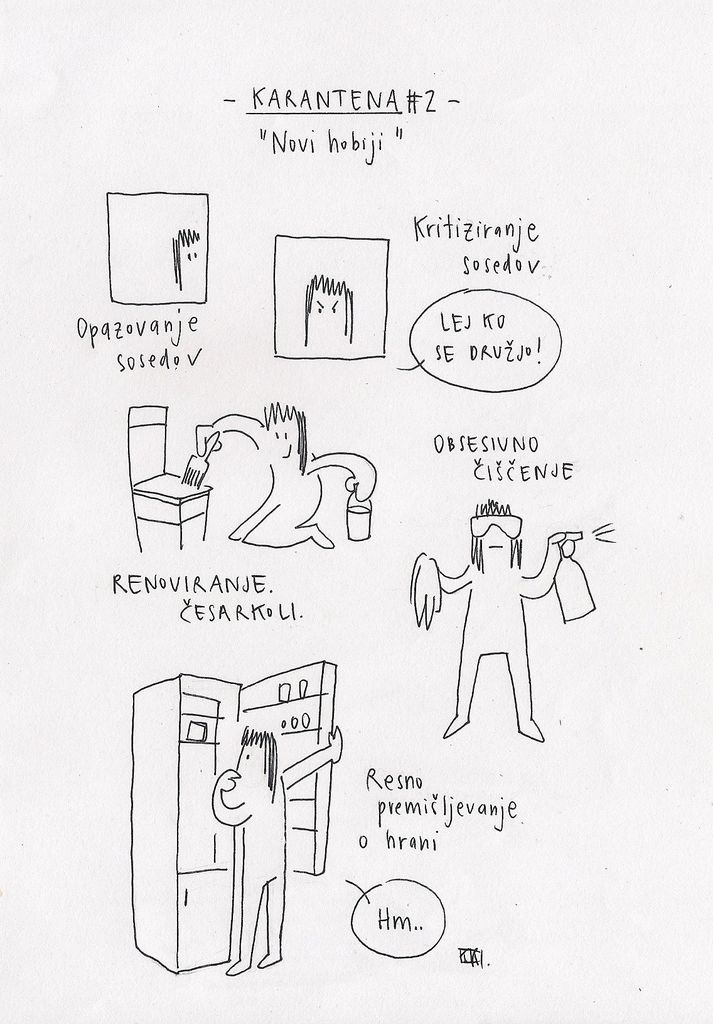 - KARANTENA #2 -
"Novi hobiji"
Opazovanje
sosedov
Kritiziranje
sosedov
LEJ KO
SE DRUŽJO!
RENOVIRANJE.
ČESARKOLI.
OBSESIVNO
ČIŠČENJE
Resno
premišljevanje
o hrani
Hm..